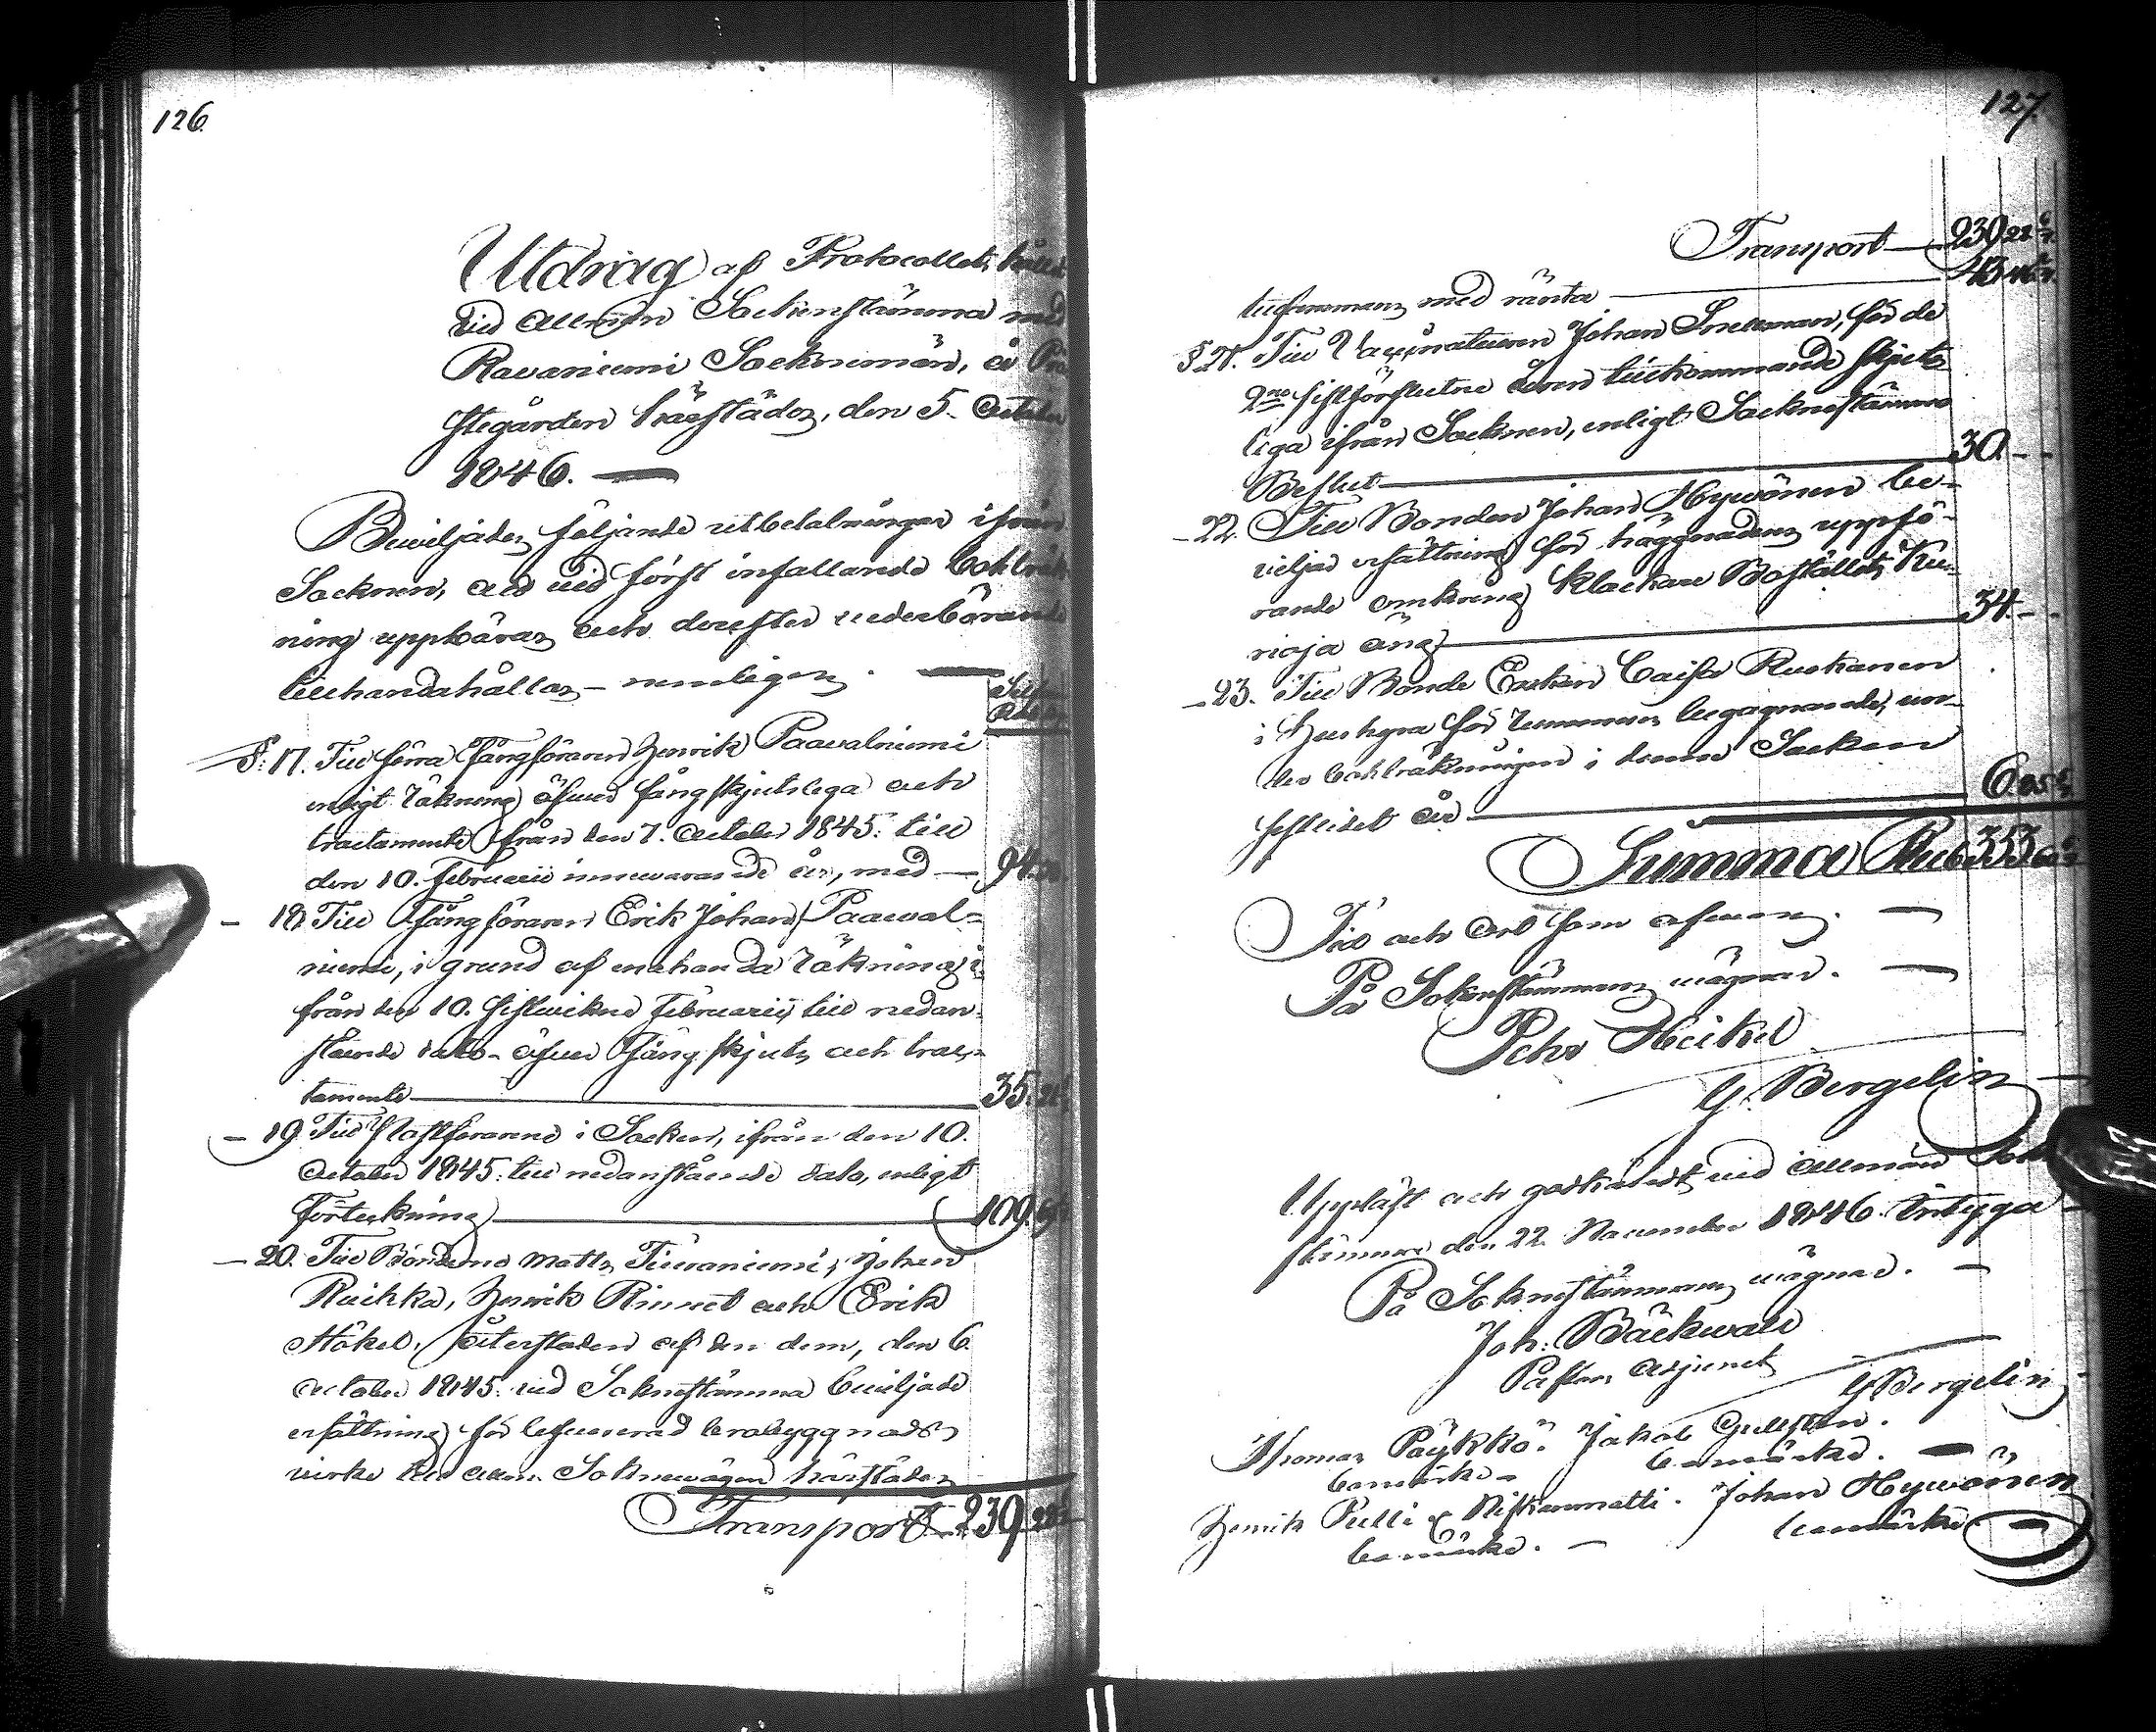 126.
Utdrag af Protocollet, hållet
vid allmän Sockenstämma med
Rovaniemi Socknemän, å Pre
stegården härstädes, den 5. October
1846. —
Beviljades följande utbetalningar ifrån
Socknen, att vid först infallande bokräk
ning uppbäras och derefter vederbörande
tillhandahållas - nemligen.
Silfver
Rub.
§: 17. Till förra Fångföraren Henrik Paavalniemi
enligt räkning öfver fångskjutslega och
tractamente från den 7. October 1845. till
den 10. Februarii innevarande år, med — 94.
— 18. Till Fångföraren Erik Johan Paaval-
niemi, i grund af enahanda räkning i
från den 10. sistvikne Februarii, till nedan
stående dato - öfver Fångskjuts och trac-
tamente — 35.
— 19. Till Postförarene i Socken, ifrån den 10.
October 1845. till nedanstående dato, enligt
förtekning — 109.
— 20. Till Bönderne Matts Tiuraniemi, Johan
Ruikka, Henrik Rinnet och Erik
Hökel, återstoden af den dem, den 6.
October 1845. vid Soknestämma beviljade
ersättning för lefvererad brobyggnads
virke till allm. Soknevägen härstädes
Transport 239.
127.
Transport — 239 22 6/7.
tillsammans med ränta —
§ 21. Till Vaccinateuren Johan Snellman, för de
2ne sistförflutne åren tillkommande skjuts
lega ifrån Socknen, enligt Socknestämmo
Beslut — 30. - -
— 22. Till Bonden Johan Hyvönen be-
viljad ersättning för häggnadens uppfö-
rande omkring Klockare Bostället,
nioja äng — 34. - -
— 23. Till Bonde Enkan Caisa Ruokanen
i Hushyra för rummens begagnande, un-
der bokräkningen i denna Socken
sistledet år — 6.
Summa Rub 353
Tid och Ort som ofvan. —
På Soknestämmans vägnar. —
Pehr Heikel
G. Bergelin
Uppläst och godkändt vid allmän Sokne
stämma den 22. November 1846. Intyga —
På Soknestämmans vägnar. —
Joh: Bäckvall
Pastors Adjunct
G Bergelin
Thomas Pöykkö. Jakob Gullsten.
bomärke - bomärke. —
Henrik Pulli Niskanmatti. Johan Hyvönen
bomärke. — bomärke —